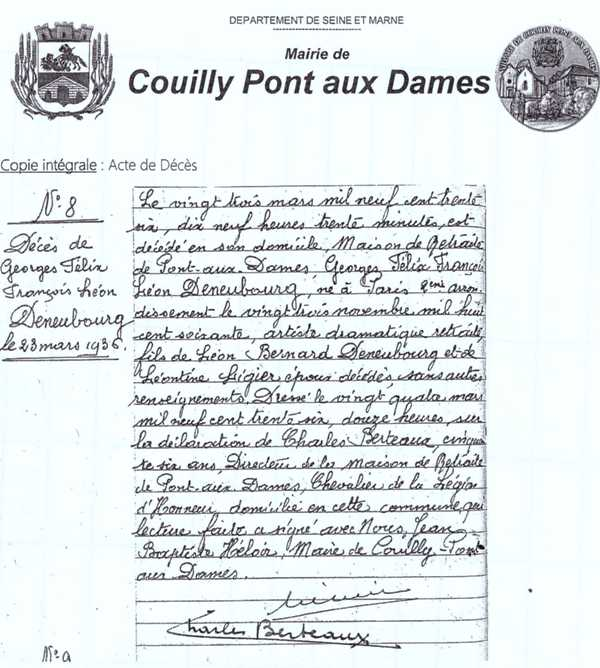 DEPARTEMENT DE SEINE ET MARNE
Mairie de
Couilly Pont aux Dames
Copie intégrale : Acte de Décès
N° 8
Décès de
Georges Félix
François Léon
Deneubourg
le 23 mars 1936.
Le vingt trois mars mil neuf cent trente
six, dix neuf heures trente minutes, est
décédé en son domicile, Maison de Retraite
de Pont-aux-Dames, Georges Félix François
Léon Deneubourg, né à Paris 2eme arron
dissement le vingt trois novembre mil huit
cent soixante, artiste dramatique retraité,
fils de Léon Bernard Deneubourg et de
Léontine Légier époux décédés, sans autres
renseignements. Dressé le vingt quatre mars
mil neuf cent trente six, douze heures, sur
la déclaration de Charles Berteaux, cinquan
te six ans, Directeur de la Maison de Retraite
de Pont-aux-Dames, Chevalier de la Légion
d'Honneur, domicilié en cette commune, qui
lecture faite a signé avec Nous, Jean
Baptiste Héloir, Maire de Couilly-Pont
aux Dames.
Charles Berteaux